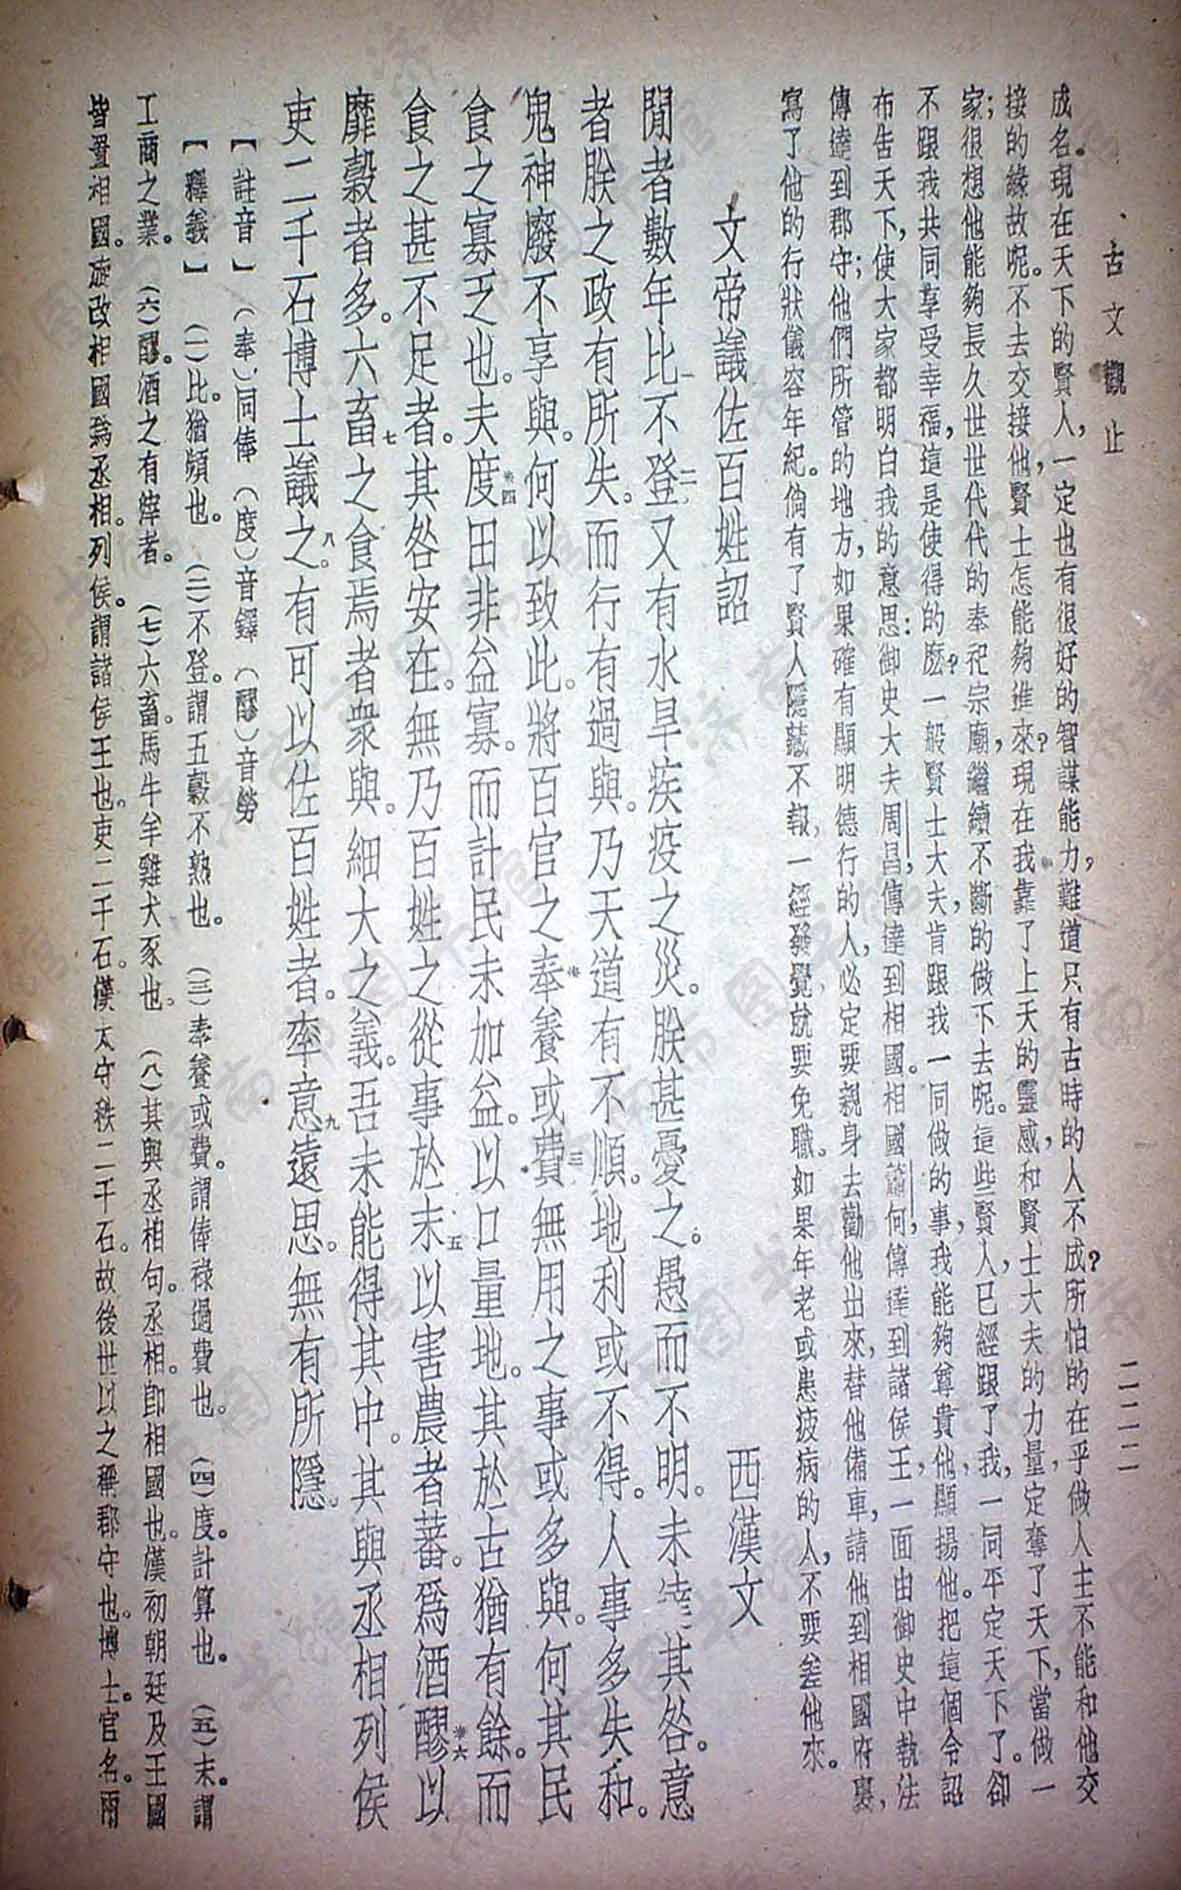 古文觀止
二二二
成名。現在天下的賢人，一定也有很好的智謀能力，難道只有古時的人不成？所怕的在乎做人主不能和他交
接的緣故呢。不去交接他，賢士怎能夠進來？現在我靠了上天的靈感，和賢士大夫的力量，定奪了天下，當做一
家；很想他能夠長久世世代代的奉祀宗廟，繼續不斷的做下去呢。這些賢人，已經跟了我，一同平定天下了。卻
不跟我共同享受幸福，這是使得的麼？一般賢士大夫，肯跟我一同做的事，我能夠尊貴他，顯揚他。把這個令詔
布告天下，使大家都明白我的意思：御史大夫周昌，傳達到相國。相國蕭何，傳達到諸侯王，一面由御史中執法，
傳達到郡守；他們所管的地方，如果確有顯明德行的人，必定要親身去勸他出來，替他備車，請他到相國府裏，
寫了他的行狀儀容年紀。倘有了賢人隱藏不報，一經發覺就要免職。如果年老或患疲病的人，不要差他來。
文帝議佐百姓詔 西漢文
閒者數年比一不登二又有水旱疾疫之災。朕甚憂之。愚而不明。未達其咎。意
者朕之政有所失。而行有過與。乃天道有不順。地利或不得。人事多失和。
鬼神廢不享與。何以致此。將百官之奉養或費三無用之事或多與。何其民
食之寡乏也。夫度四田非益寡。而計民未加益。以口量地。其於古猶有餘。而
食之甚不足者。其咎安在。無乃百姓之從事於末五以害農者蕃。爲酒醪六以
靡穀者多。六畜七之食焉者衆與。細大之義。吾未能得其中。其與丞相列侯
吏二千石博士議之八。有可以佐百姓者。率意九遠思。無有所隱。
【註音】（奉）同俸（度）音鐸（醪）音勞
【釋義】（一）比。猶頻也。（二）不登。謂五穀不熟也。（三）奉養或費。謂俸祿過費也。（四）度。計算也。（五）末。謂
工商之業。（六）醪。酒之有滓者。（七）六畜。馬牛羊雞犬豕也。（八）其與丞相句。丞相。卽相國也。漢初朝廷及王國
皆置相國。旋改相國爲丞相。列侯。謂諸侯王也。吏二千石。漢太守秩二千石。故後世以之稱郡守也。博士。官名。兩